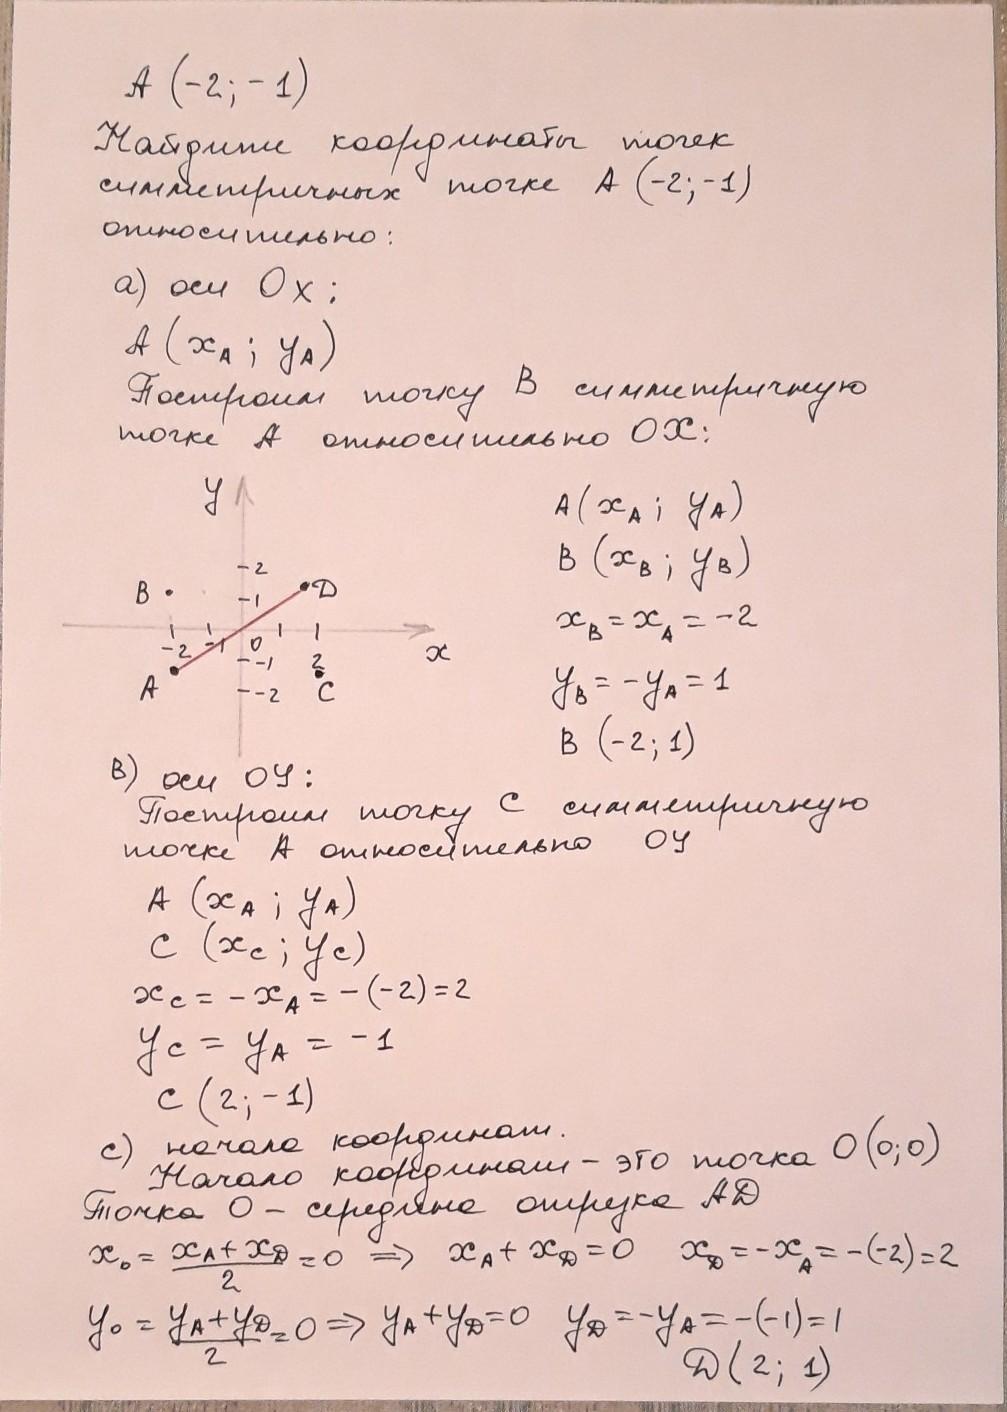 A (-2; -1)
Найдите координаты точек
симметричных точке A (-2; -1)
относительно:
а) оси Ox;
A (xA; yA)
Построим точку B симметричную
точке A относительно OX:
y
-2
B
-1
D
-2
-1
0
2
x
-1
A
-2
C
A (xA; yA)
B (xB; yB)
xB = xA = -2
yB = -yA = 1
B (-2; 1)
в) оси OY:
Построим точку C симметричную
точке A относительно OY
A (xA; yA)
C (xC; yC)
xC = -xA = -(-2) = 2
yC = yA = -1
C (2; -1)
c) начала координат.
Начало координат - это точка O (0; 0)
Точка O - середина отрезка AD
x0 = (xA + xD)/2 = 0 => xA + xD = 0 xD = -xA = -(-2) = 2
y0 = (yA + yD)/2 = 0 => yA + yD = 0 yD = -yA = -(-1) = 1
D (2; 1)